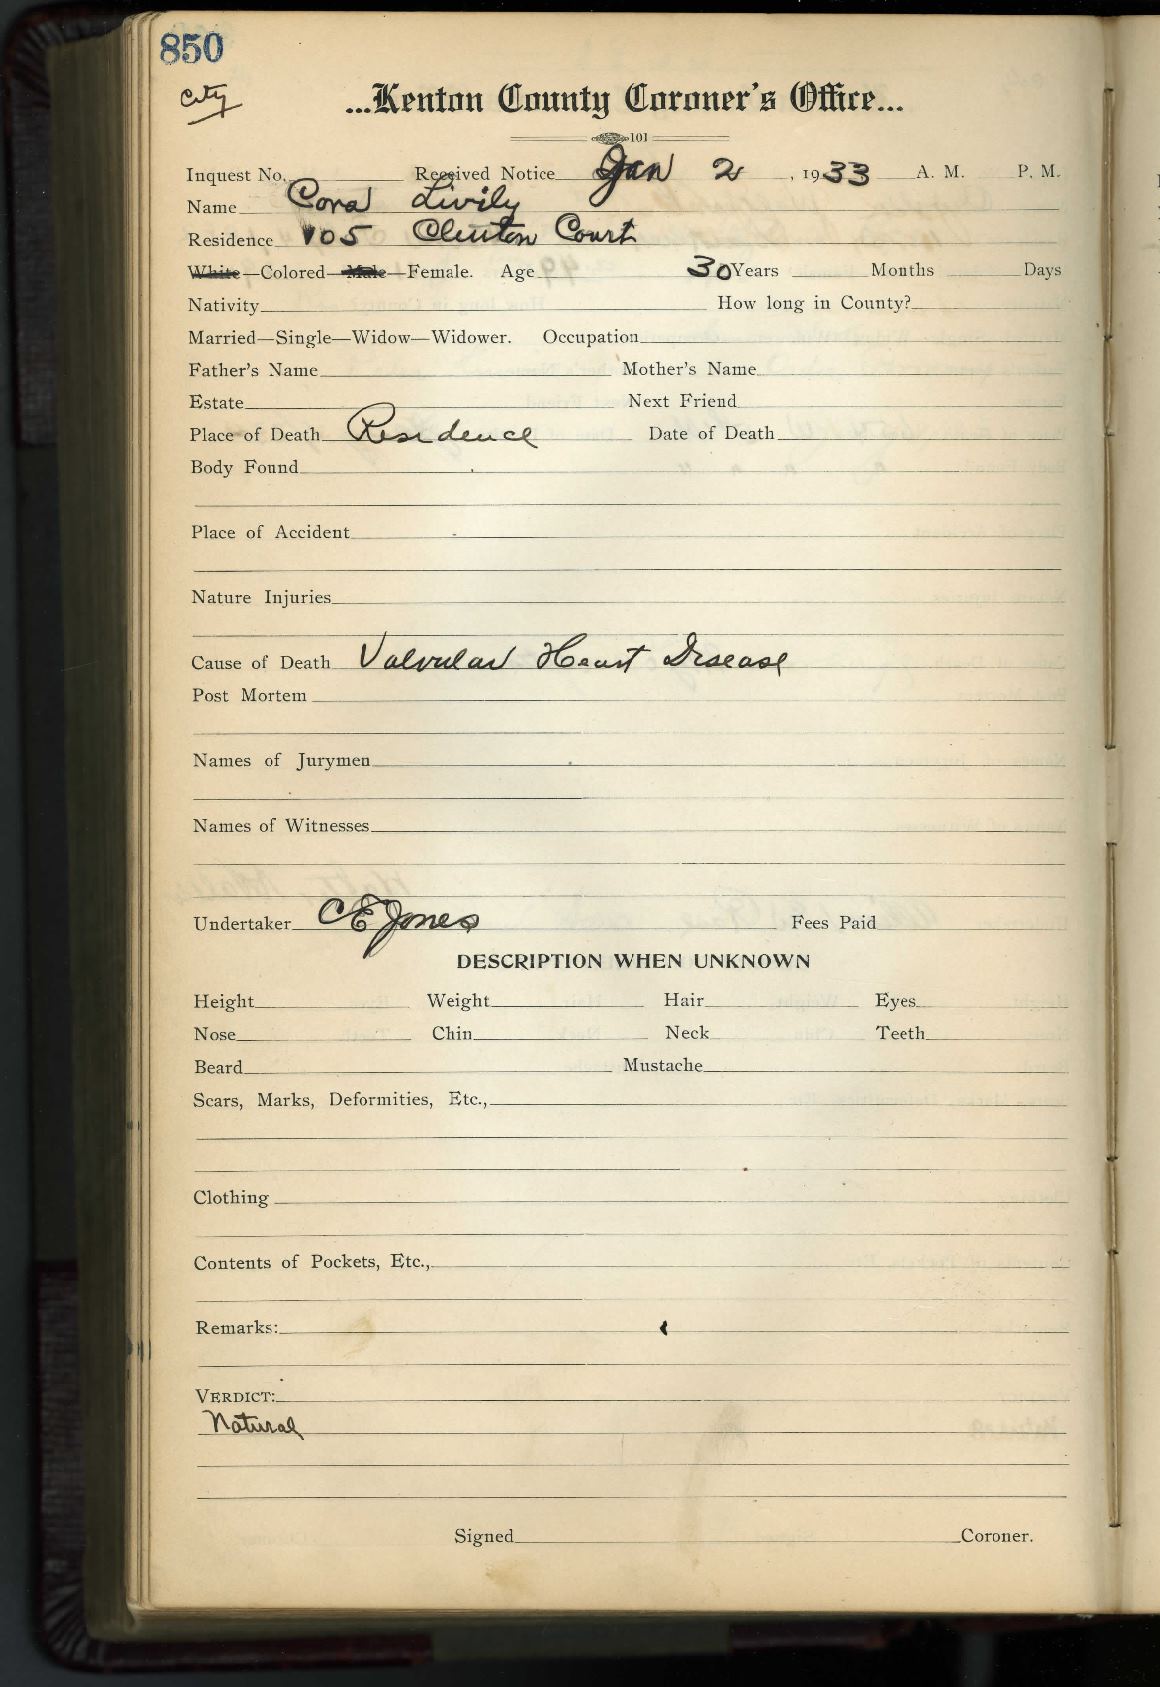 850
City
...Kenton County Coroner's Office...
101
Inquest No. Received Notice Jan 2, 1933 A. M. P. M.
Name Cora Livily
Residence 105 Clinton Court
White—Colored—Male—Female. Age 30 Years Months Days
Nativity How long in County?
Married—Single—Widow—Widower. Occupation
Father's Name Mother's Name
Estate Next Friend
Place of Death Residence Date of Death
Body Found
Place of Accident
Nature Injuries
Cause of Death Valvular Heart Disease
Post Mortem
Names of Jurymen
Names of Witnesses
Undertaker C E Jones Fees Paid
DESCRIPTION WHEN UNKNOWN
Height Weight Hair Eyes
Nose Chin Neck Teeth
Beard Mustache
Scars, Marks, Deformities, Etc.,
Clothing
Contents of Pockets, Etc.,
Remarks:
VERDICT:
Natural
Signed Coroner.